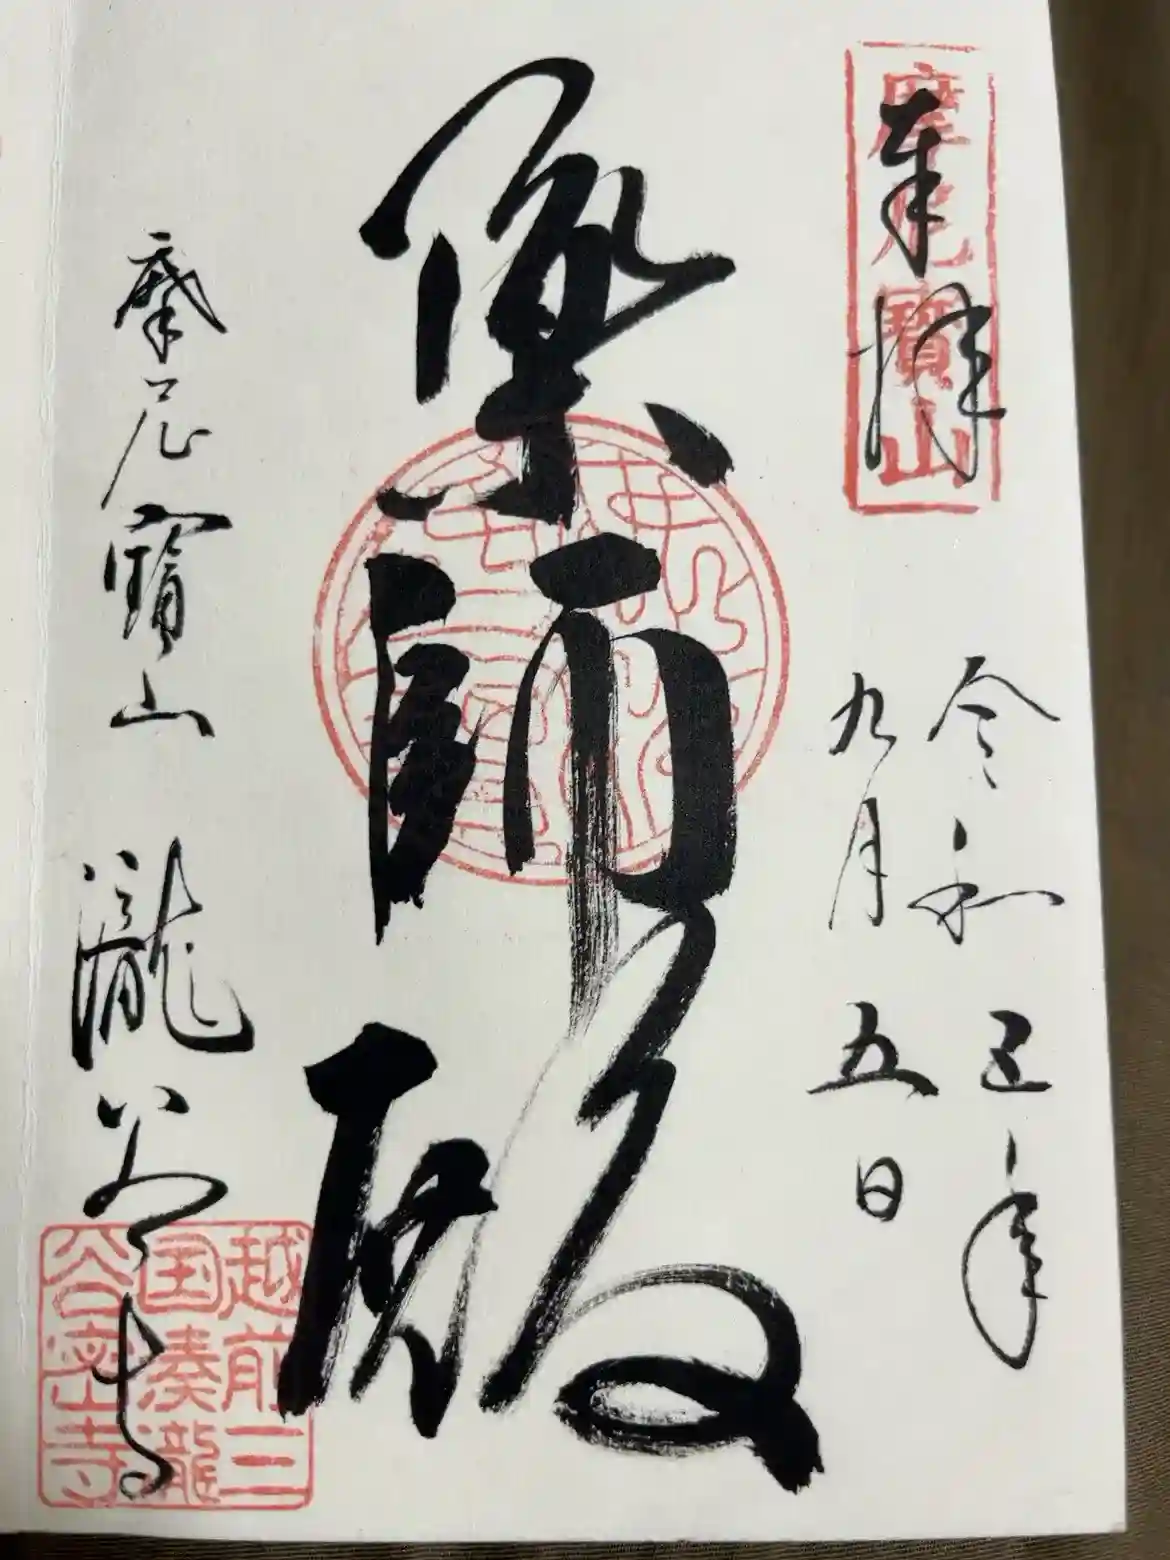 奉拝
摩尼寶山
令和五年
九月五日
薬師殿
摩尼寳山 瀧谷寺
越前三
国湊瀧
谷密寺